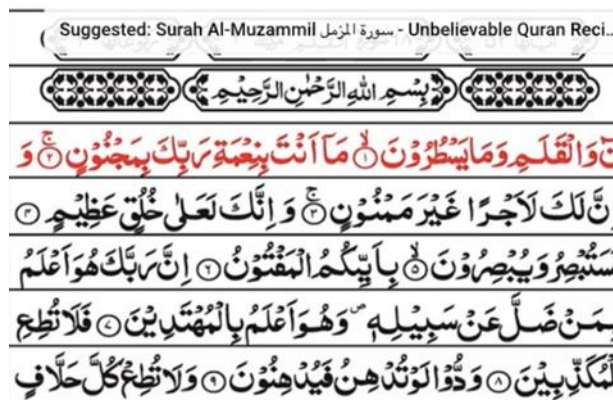 Suggested: Surah Al-Muzammil سورة المزمل - Unbelievable Quran Reci...
بِسْمِ اللهِ الرَّحْمٰنِ الرَّحِيْمِ
وَالْقَلَمِ وَمَا يَسْطُرُوْنَ ۙ﴿۱﴾ مَاۤ اَنْتَ بِنِعْمَةِ رَبِّكَ بِمَجْنُوْنٍ ۚ﴿۲﴾ وَ
اِنَّ لَكَ لَاَجْرًا غَيْرَ مَمْنُوْنٍ ۚ﴿۳﴾ وَ اِنَّكَ لَعَلٰى خُلُقٍ عَظِيْمٍ ﴿۴﴾
سَتُبْصِرُ وَيُبْصِرُوْنَ ۙ﴿۵﴾ بِاَيِّىكُمُ الْمَفْتُوْنُ ﴿۶﴾ اِنَّ رَبَّكَ هُوَ اَعْلَمُ
بِمَنْ ضَلَّ عَنْ سَبِيْلِهٖ ۪ وَهُوَ اَعْلَمُ بِالْمُهْتَدِيْنَ ﴿۷﴾ فَلَا تُطِعِ
الْمُكَذِّبِيْنَ ﴿۸﴾ وَدُّوْا لَوْ تُدْهِنُ فَيُدْهِنُوْنَ ﴿۹﴾ وَلَا تُطِعْ كُلَّ حَلَّافٍ